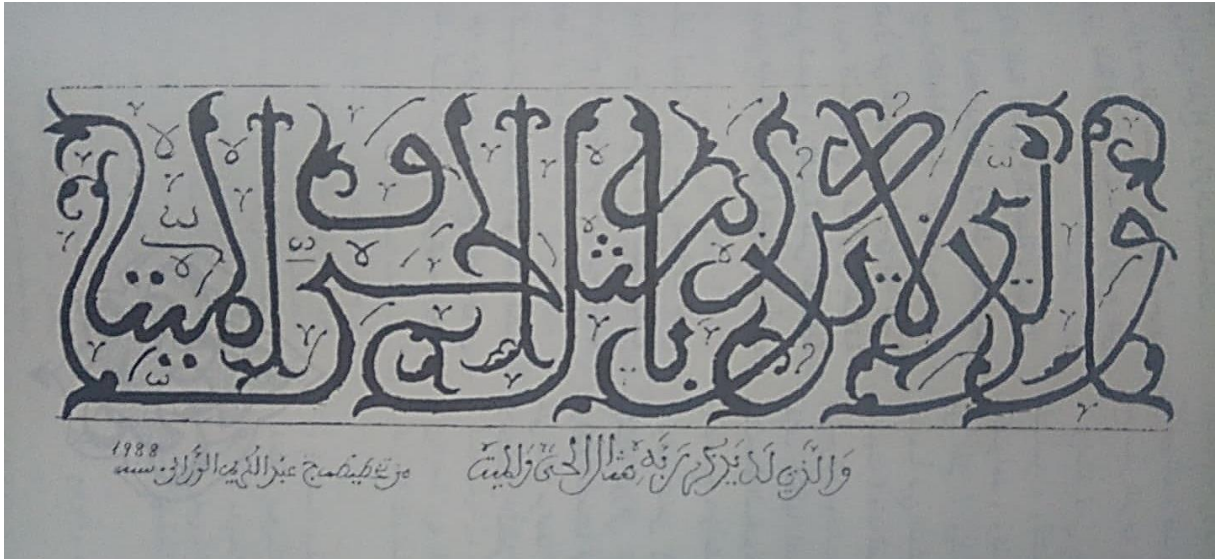 والذي لا يذكر ربه مثل الحي والميت
والذي لا يذكر ربه مثل الحي والميت
من عبد الكريم الوزاني سنة 1988